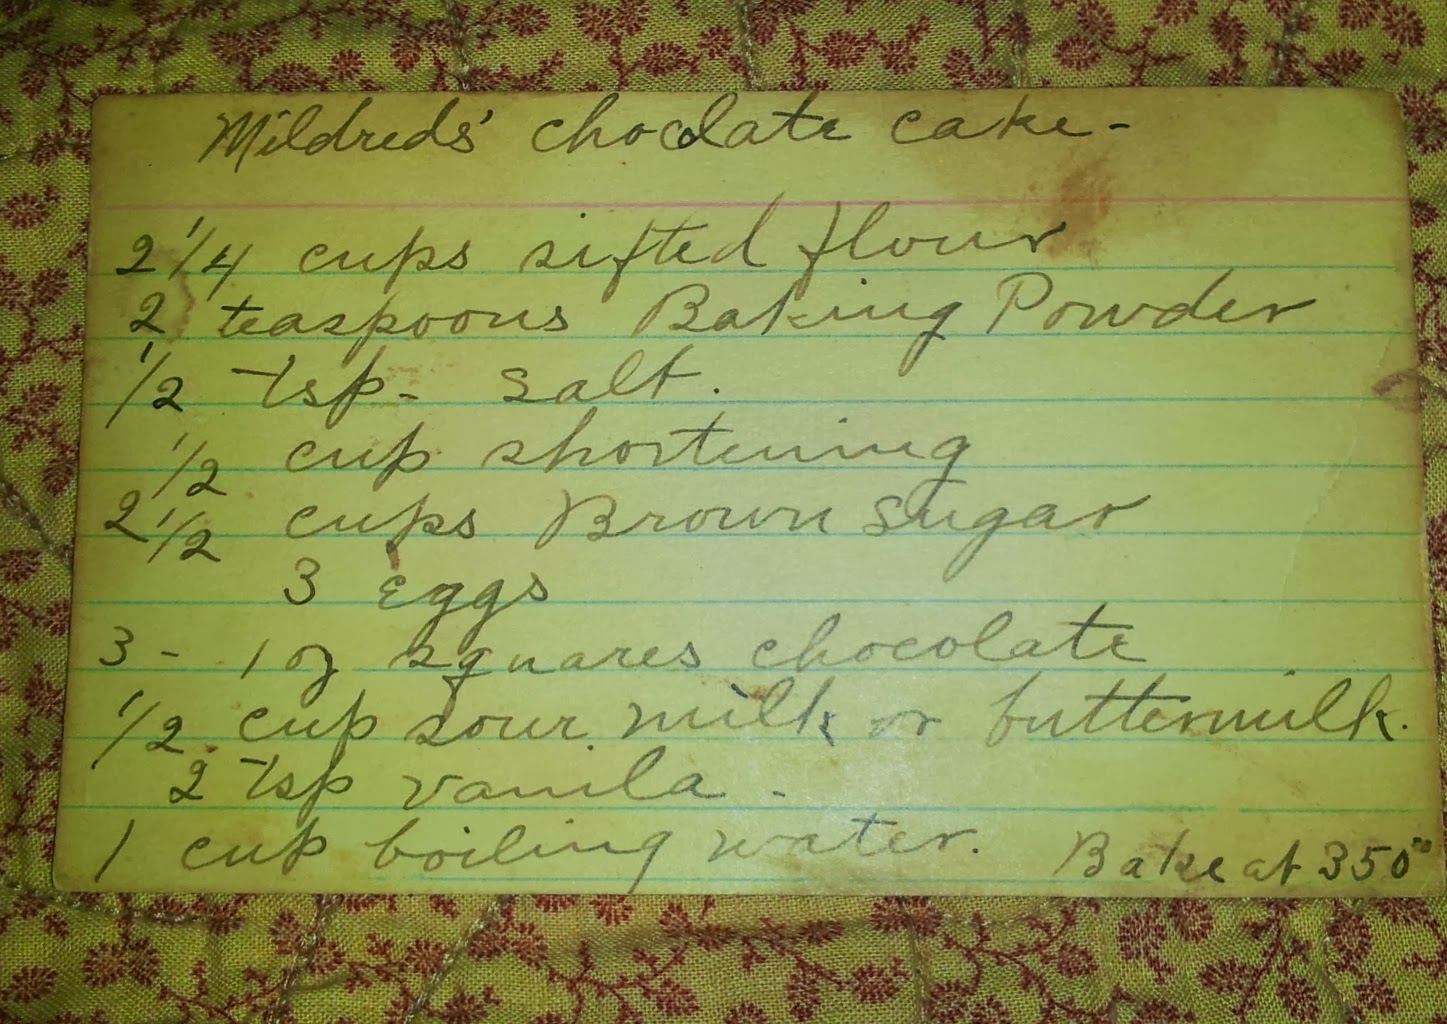 Mildreds' choclate cake-
2 1/4 cups sifted flour
2 teaspoons Baking Powder
1/2 tsp- salt.
1/2 cup shortening
2 1/2 cups Brown sugar
3 eggs
3 - 1 oz squares chocolate
1/2 cup sour milk or buttermilk.
2 tsp vanila.
1 cup boiling water. Bake at 350°